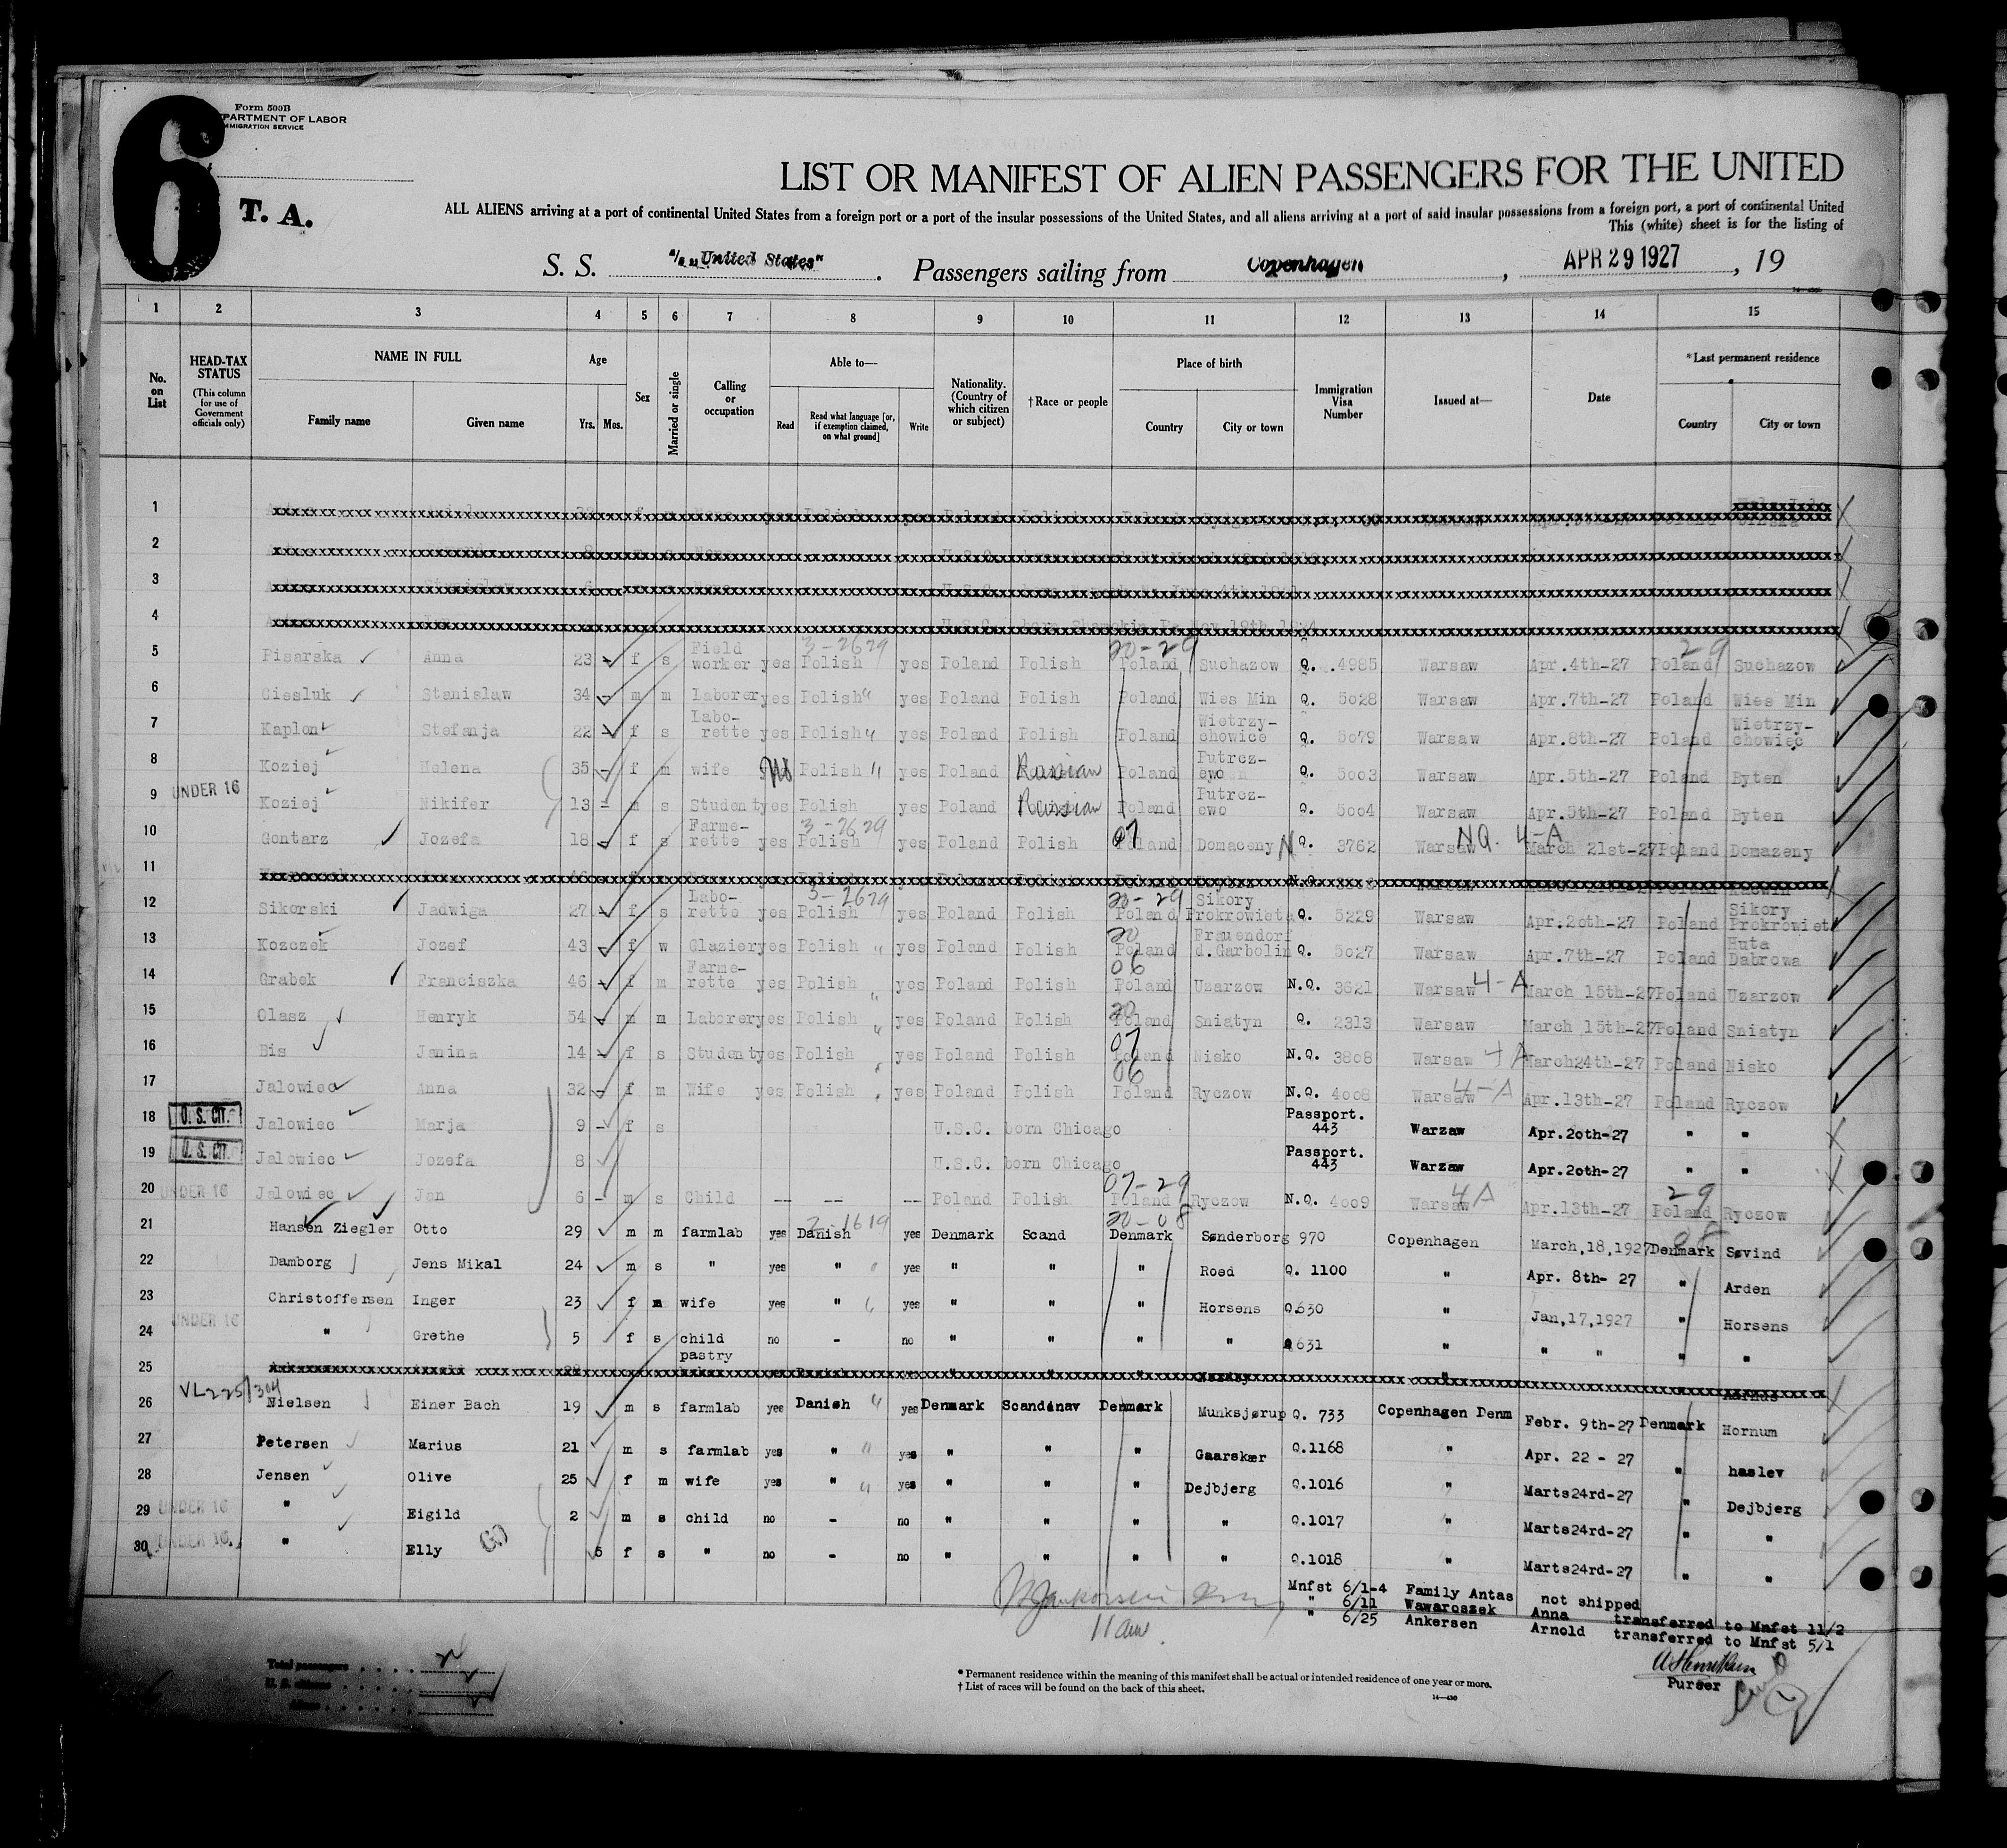 6
Form 500B
PARTMENT OF LABOR
MMIGRATION SERVICE
T. A.
LIST OR MANIFEST OF ALIEN PASSENGERS FOR THE UNITED
ALL ALIENS arriving at a port of continental United States from a foreign port or a port of the insular possessions of the United States, and all aliens arriving at a port of said insular possessions from a foreign port, a port of continental United
This (white) sheet is for the listing of
S. S. "United States". Passengers sailing from Copenhagen, APR 29 1927, 19
1 2 3 4 5 6 7 8 9 10 11 12 13 14 15
No. on List
HEAD-TAX STATUS (This column for use of Government officials only)
NAME IN FULL
Family name Given name
Age
Yrs. Mos.
Sex
Married or single
Calling or occupation
Able to—
Read
Read what language [or, if exemption claimed, on what ground]
Write
Nationality. (Country of which citizen or subject)
†Race or people
Place of birth
Country City or town
Immigration Visa Number
Issued at—
Date
*Last permanent residence
Country City or town
1
2
3
4
3-2629 20-29 29
5 Pisarska Anna 23 - f s Field worker yes Polish yes Poland Polish Poland Suchazow Q. .4985 Warsaw Apr.4th-27 Poland Suchazow
6 Ciesluk Stanislaw 34 - m m Laborer yes Polish " yes Poland Polish Poland Wies Min Q. 5028 Warsaw Apr.7th-27 Poland Wies Min
7 Kaplon Stefanja 22 - f s Labo-rette yes Polish " yes Poland Polish Poland Wietrzy-chowice Q. 5079 Warsaw Apr.8th-27 Poland Wietrzy-chowiec
8 Koziej Helena 35 - f m wife Polish " yes Poland Russian Poland Putroz-ewo Q. 5003 Warsaw Apr.5th-27 Poland Byten
9 UNDER 16 Koziej Nikifer 13 - m s Student yes Polish yes Poland Russian Poland Putroz-ewo Q. 5004 Warsaw Apr.5th-27 Poland Byten
3-2629 07 NQ. 4-A
10 Gontarz Jozefa 18 - f s Farme-rette yes Polish yes Poland Polish Poland Domaceny N Q. 3762 Warsaw March 21st-27 Poland Domazeny
11
3-2629 20-29
12 Sikorski Jadwiga 27 - f s Labo-rette yes Polish yes Poland Polish Poland Sikory Prokrowiet Q. 5229 Warsaw Apr.2oth-27 Poland Sikory Prokrowiet
20
13 Kozczek Jozef 43 - f w Glazier yes Polish " yes Poland Polish Poland Frauendorf d.Garbolin Q. 5027 Warsaw Apr.7th-27 Poland Huta Dabrowa
06
14 Grabek Franciszka 46 - f m Farme-rette yes Polish " yes Poland Polish Poland Uzarzow N.Q. 3621 Warsaw 4-A March 15th-27 Poland Uzarzow
20
15 Olasz Henryk 54 - m m Laborer yes Polish " yes Poland Polish Poland Sniatyn Q. 2313 Warsaw March 15th-27 Poland Sniatyn
07
16 Bis Janina 14 - f s Student yes Polish yes Poland Polish Poland Nisko N.Q. 3808 Warsaw 4 A March24th-27 Poland Nisko
06
17 Jalowiec Anna 32 - f m Wife yes Polish yes Poland Polish Poland Ryczow N.Q. 4008 Warsaw 4-A Apr.13th-27 Poland Ryczow
18 U. S. CIT. Jalowiec Marja 9 - f s U.S.C. born Chicago Passport. 443 Warzaw Apr.2oth-27 " "
19 U. S. CIT. Jalowiec Jozefa 8 U.S.C. born Chicago Passport. 443 Warzaw Apr.2oth-27 " "
07-29 29
20 UNDER 16 Jalowiec Jan 6 - m s Child -- -- -- Poland Polish Poland Ryczow N.Q. 4009 Warsaw 4A Apr.13th-27 Poland Ryczow
2-1619 20-08 08
21 Hansen Ziegler Otto 29 m m farmlab yes Danish yes Denmark Scand Denmark Sønderborg 970 Copenhagen March,18,1927 Denmark Søvind
22 Damborg Jens Mikal 24 m s " yes " " yes " " " Roed Q. 1100 " Apr. 8th- 27 " Arden
23 Christoffersen Inger 23 f m wife yes " " yes " " " Horsens Q.630 " Jan,17,1927 " Horsens
24 UNDER 16 " Grethe 5 f s child no - no " " " " 631 " " " " "
25 pastry
VL225/304
26 Nielsen Einer Bach 19 m s farmlab yes Danish " yes Denmark Scandinav Denmark Munksjørup Q. 733 Copenhagen Denm Febr. 9th-27 Denmark Hornum
27 Petersen Marius 21 m s farmlab yes " " yes " " " Gaarskær Q.1168 " Apr. 22 - 27 " haslev
28 Jensen Olive 25 f m wife yes " " yes " " " Dejbjerg Q.1016 " Marts24rd-27 " Dejbjerg
29 UNDER 16 " Eigild 2 m s child no - no " " " " Q.1017 " Marts24rd-27 " "
30 UNDER 16. " Elly 5 f s " no - no " " " " Q.1018 " Marts24rd-27 " "
Mnfst 6/1-4 Family Antas not shipped
" 6/11 Wawaroszek Anna transferred to Mnfst 11/2
" 6/25 Ankersen Arnold transferred to Mnfst 5/1
Purser
Total passengers . . . .
U. S. citizens . . . . .
Aliens . . . . . .
* Permanent residence within the meaning of this manifest shall be actual or intended residence of one year or more.
† List of races will be found on the back of this sheet.
14—430